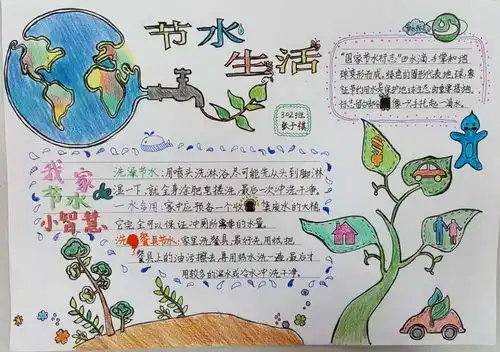 节水
生活
302班
张子棋
"国家节水标志"由水滴、手掌和地
球变形而成。绿色的圆形代表地球,象
征节约用水是保护地球生态的重要措施。
标志留白部像一只手托起一滴水。
我家
节水
小智慧
洗澡节水:用喷头洗淋浴,尽可能先从头到脚淋
湿一下,就全身涂肥皂搓洗,最后一次冲洗干净。
一水多用:家中应预备一个收集废水的大桶
它完全可以保证冲厕所需要的水量。
洗餐具节水:家里洗餐具,最好先用纸把
餐具上的油污擦去,再用热水洗一遍,最后才
用较多的温水或冷水冲洗干净。